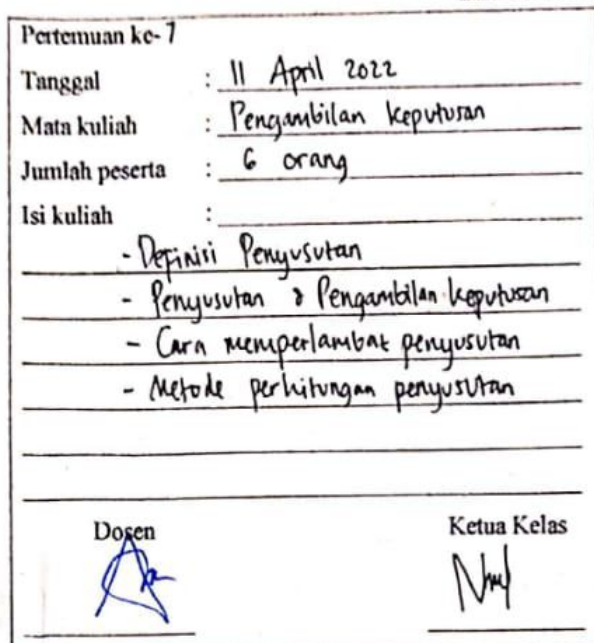 Pertemuan ke- 7
Tanggal : 11 April 2022
Mata kuliah : Pengambilan keputusan
Jumlah peserta : 6 orang
Isi kuliah :
- Definisi Penyusutan
- Penyusutan & Pengambilan keputusan
- Cara memperlambat penyusutan
- Metode perhitungan penyusutan
Dosen Ketua Kelas